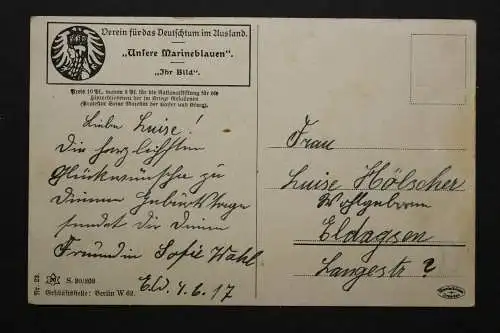 Verein für das Deutschtum im Ausland.
„Unsere Marineblauen“.
„Ihr Bild“.
Preis 10 Pf., wovon 5 Pf. für die Nationalstiftung für die
Hinterbliebenen der im Kriege Gefallenen
(Protektor Seine Majestät der Kaiser und König).
Liebe Luise!
Die herzlichsten
Glückwünsche zu
Deinem Geburtstage
sendet Dir Deine
Freundin Sofie Wahl.
Eld. 4.6.17
Frau
Luise Hölscher
Wohlgeboren
Eldagsen
Langestr ?
Nr. 23.
S. 20/208
Geschäftsstelle: Berlin W 62.